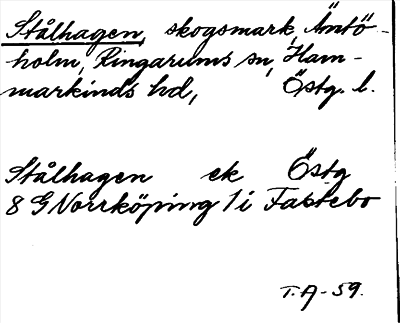 Stålhagen, skogsmark, Äntö-
holm, Ringarums sn, Ham-
markinds hd, Östg. l.
Stålhagen ek Östg
8 G Norrköping 1 i Fastebo
T.A-59.